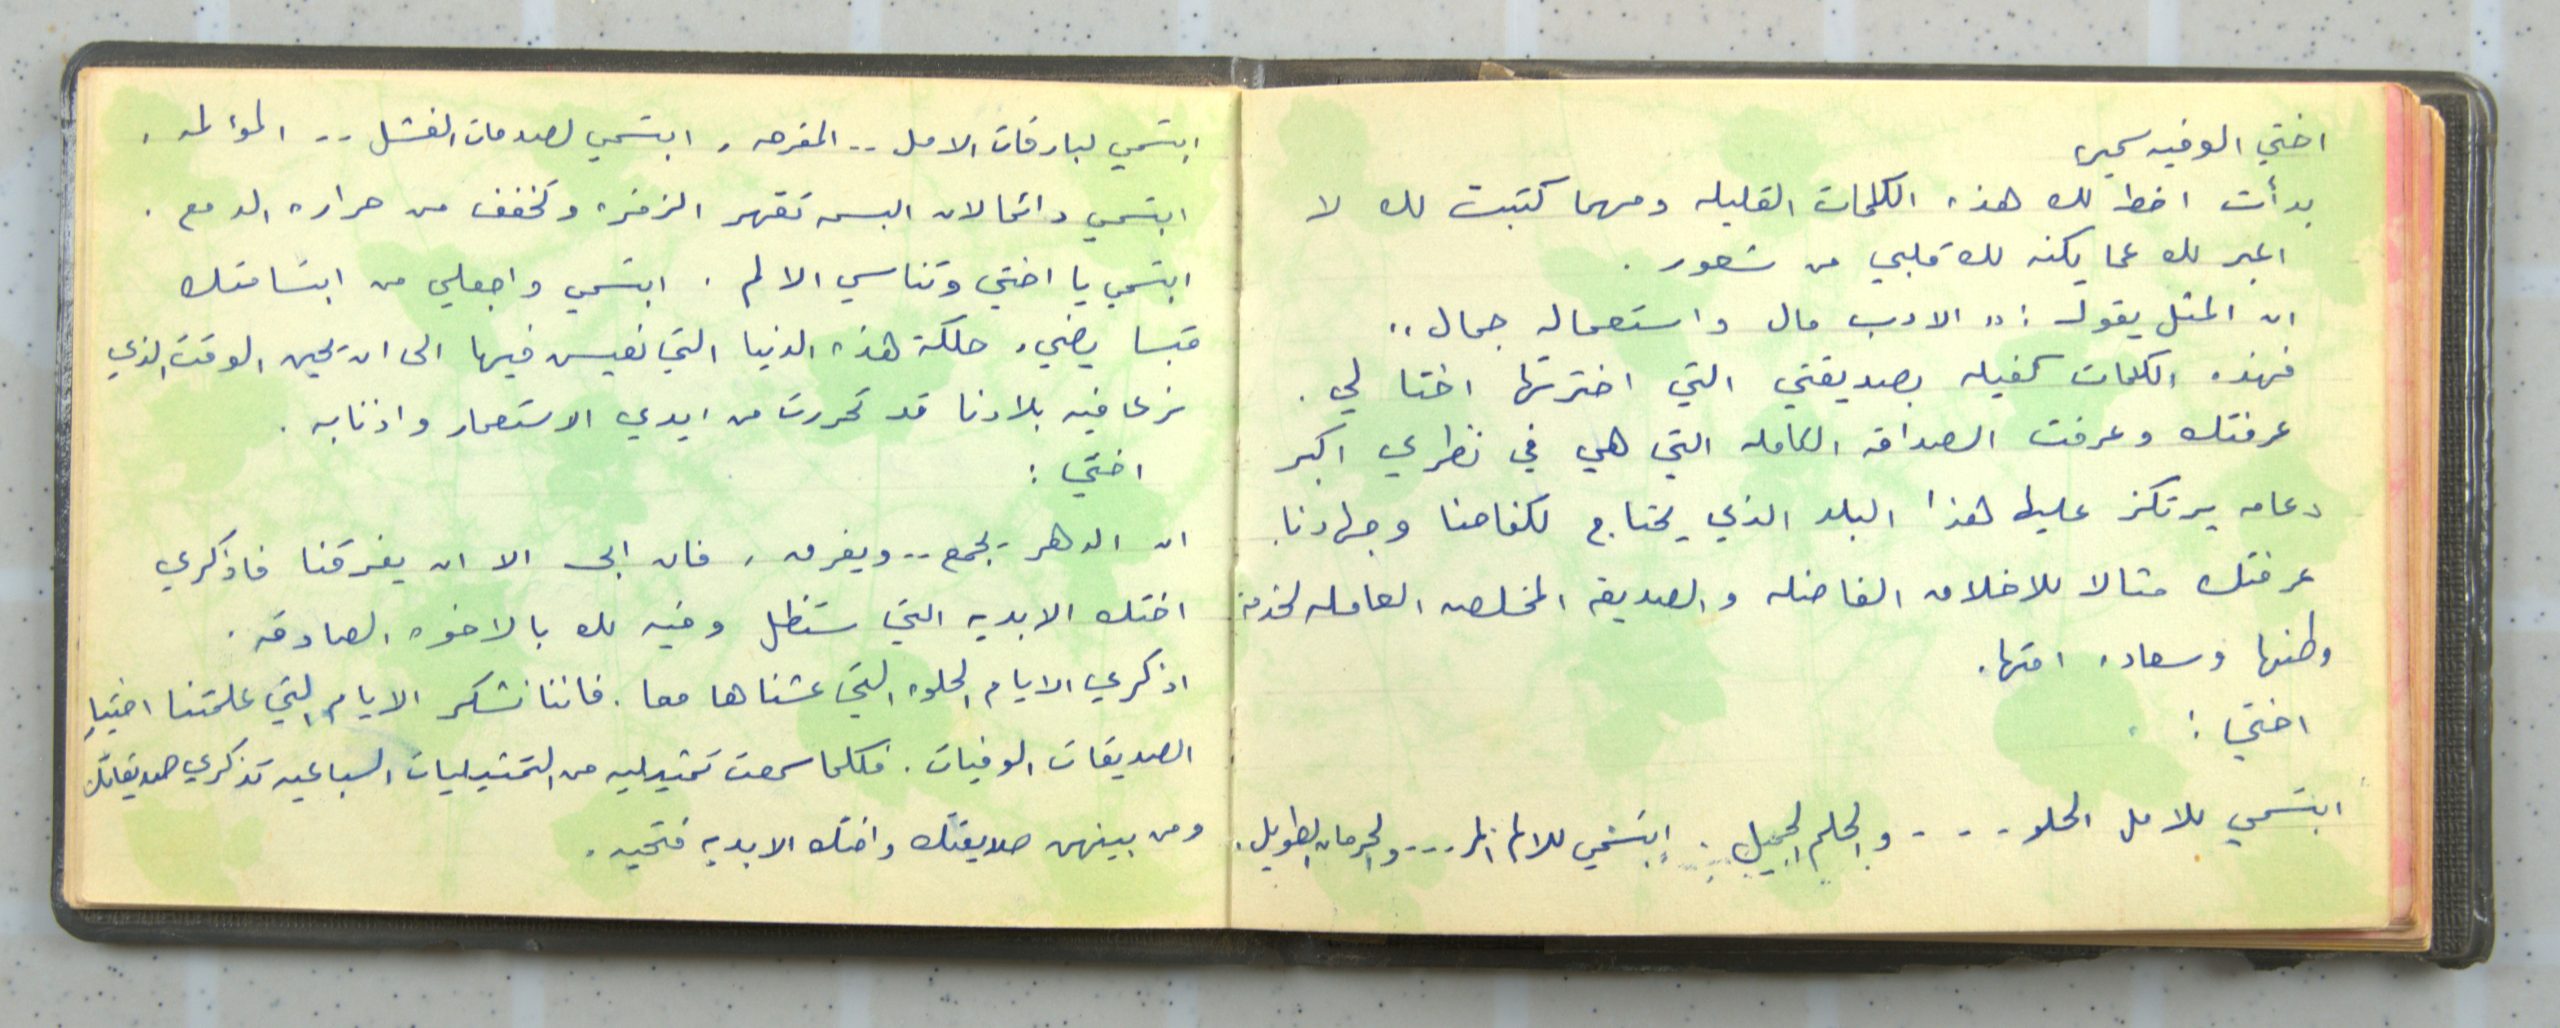 اختي الوفيه سمير
بدأت اخط لك هذه الكلمات القليله ومهما كتبت لك لا
اعبر لك عما يكنه لك قلبي من شعور .
ان المثل يقول : " الادب مال واستعماله جمال "
فهذه الكلمات كفيله بصديقتي التي اخترتها اختا لي .
عرفتك وعرفت الصداقه الكامله التي هي في نظري اكبر
دعامه يرتكز عليها هذا البلد الذي يحتاج لكفاحنا وجهادنا .
عرفتك مثالا للاخلاق الفاضله والصديقه المخلصه العامله لخدمة
وطنها وسعاده امتها .
اختي :
ابتسمي للامل الحلو - - - والحلم الجميل . ابتسمي للالم المر - - - والحرمان الطويل .
ابتسمي لبارقات الامل .. المفرحه , ابتسمي لصدمات الفشل .. المؤلمه .
ابتسمي دائما لان البسمه تقهر الزفره وتخفف من حراره الدمع .
ابتسمي يا اختي وتناسي الالم . ابتسمي واجعلي من ابتسامتك
قبسا يضيء حلكة هذه الدنيا التي نعيش فيها الى ان يحين الوقت الذي
نرى فيه بلادنا قد تحررت من ايدي الاستعمار واذنابه .
اختي :
ان الدهر يجمع .. ويفرق , فان ابى الا ان يفرقنا فاذكري
اختك الابديه التي ستظل وفيه لك بالاخوه الصادقه .
اذكري الايام الحلوه التي عشناها معا . فاننا نشكر الايام التي علمتنا اختيار
الصديقات الوفيات . فكلما سمعت تمثيليه من التمثيليات السباعيه تذكري صديقاتك
ومن بينهن صديقتك واختك الابديه فتحيه .